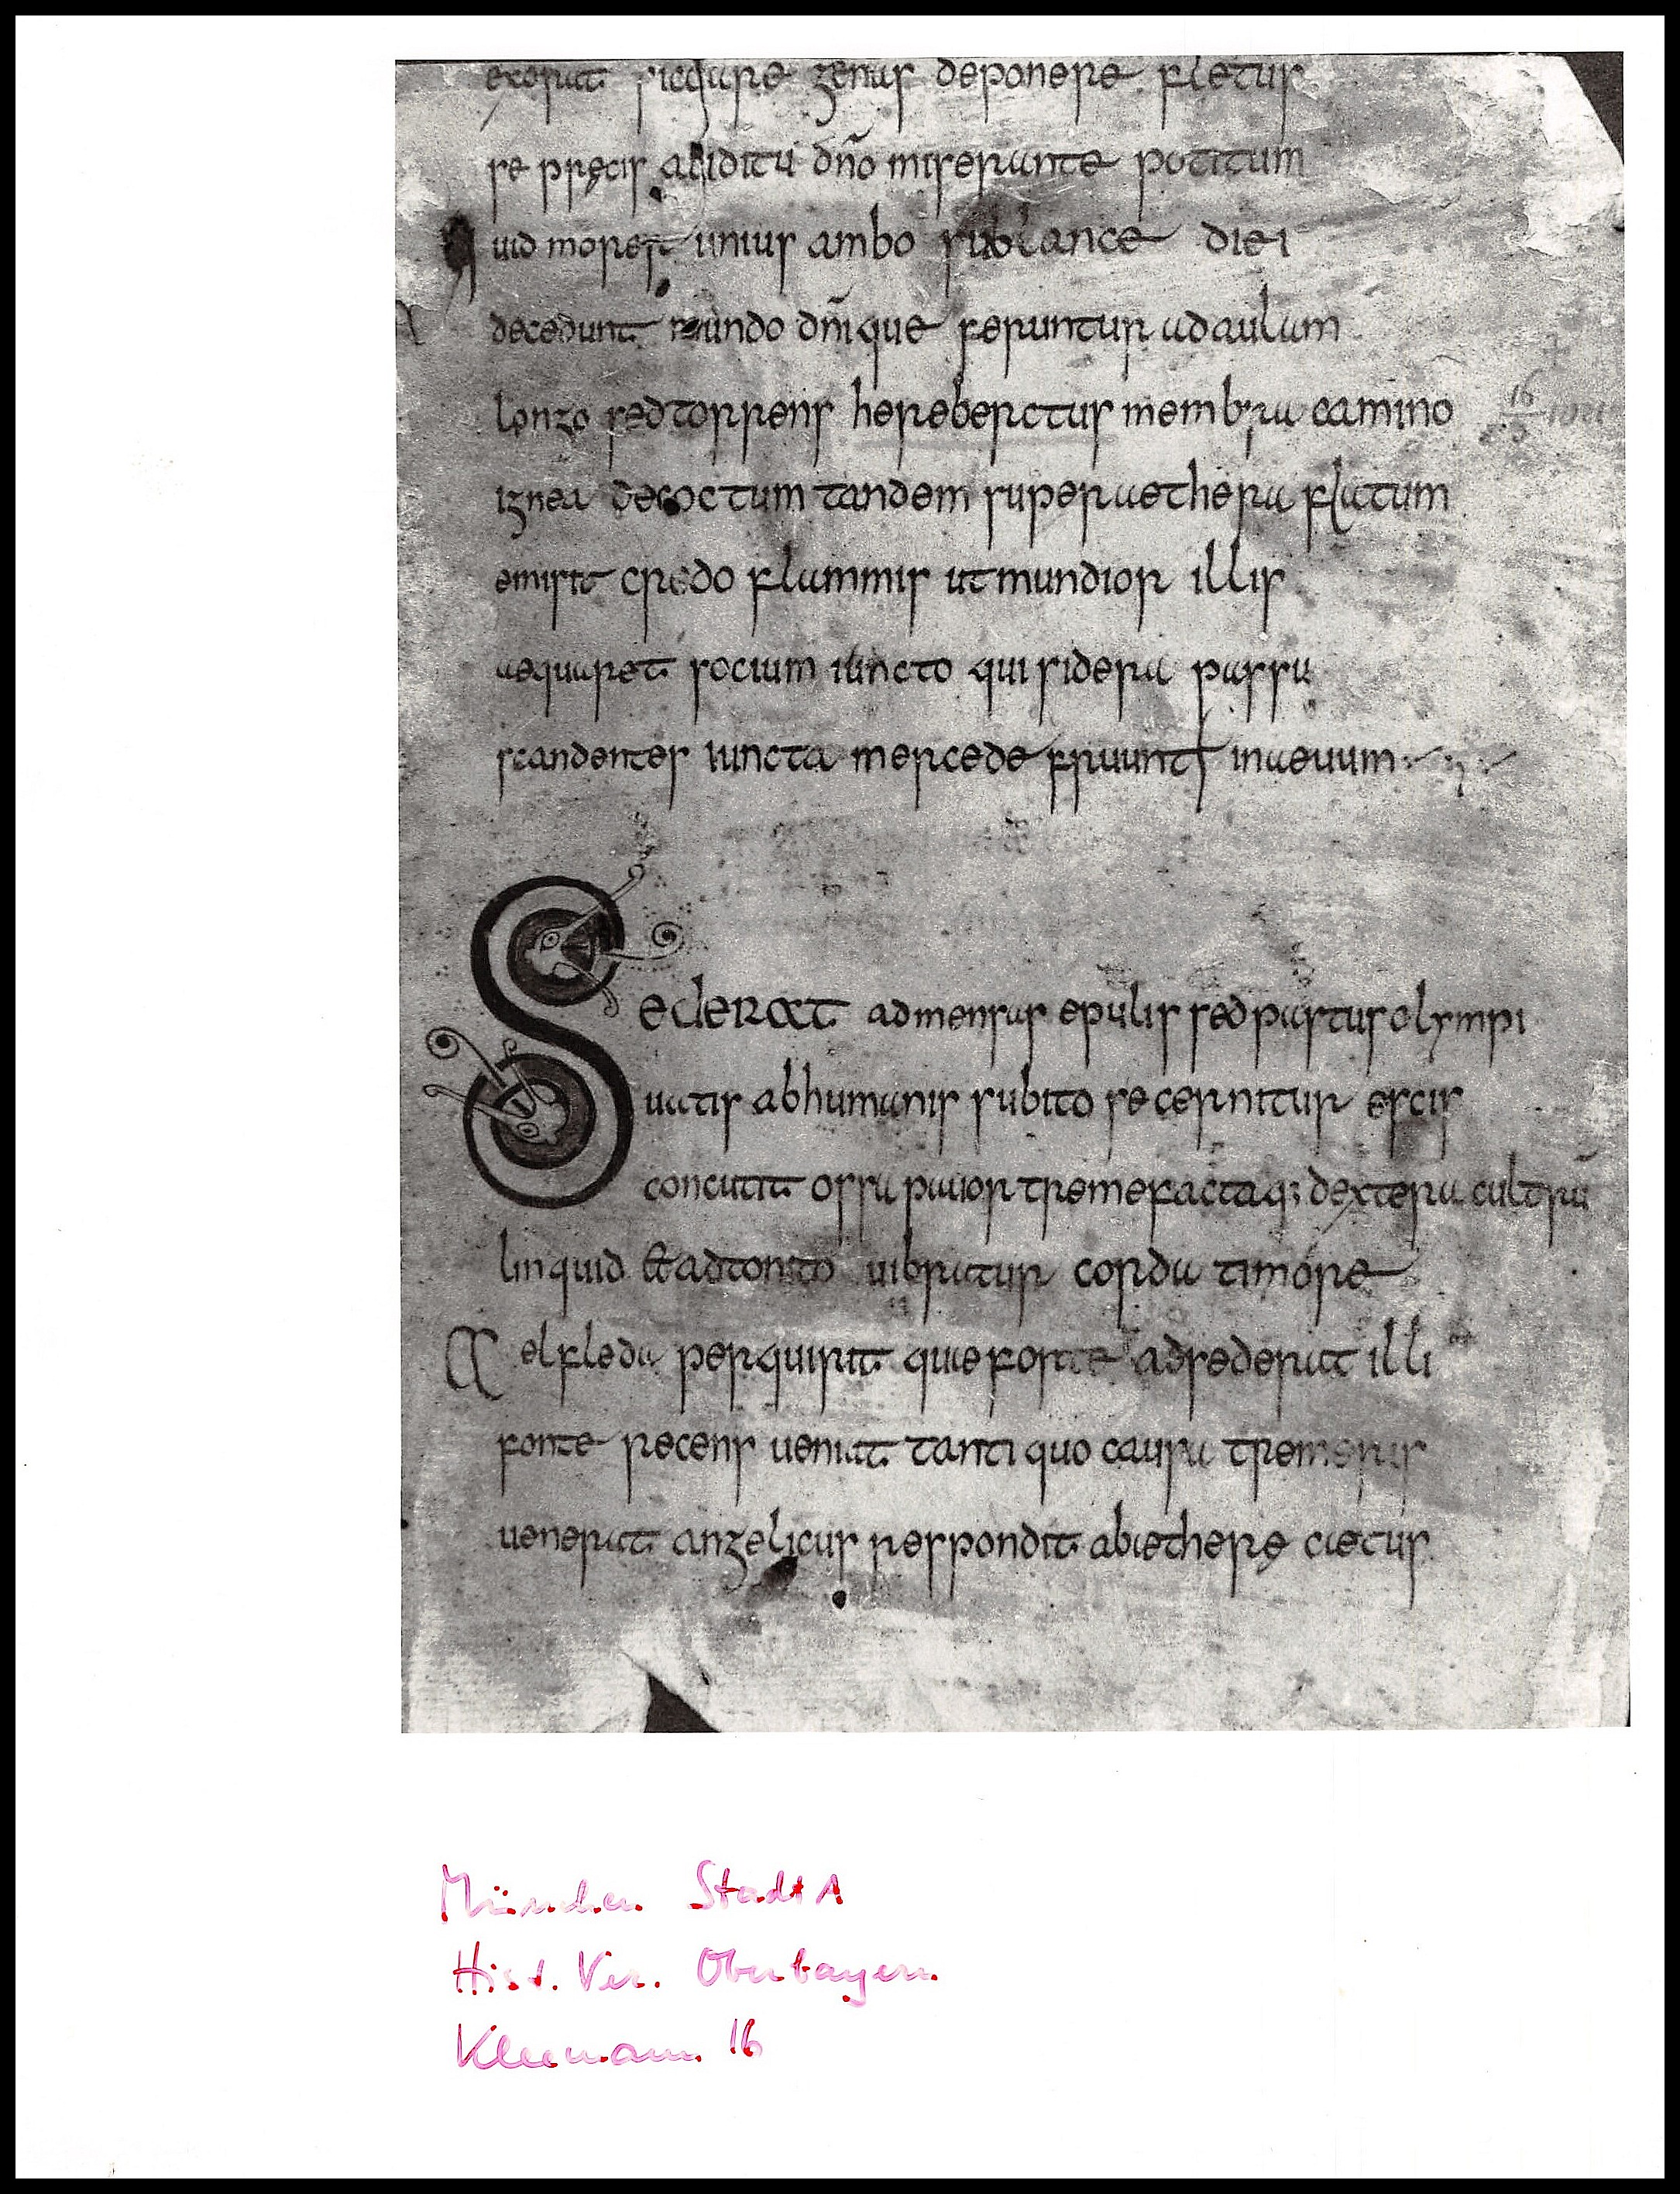 exorat siccare genas deponere fletus
se pręcis abiditū dn̄o miserante potitum
Quid mores unius ambo sub lance diei
decedunt mundo dn̄ique feruntur ad aulam
longo sed torrens hereberctus membra camino
ignea decoctum tandem super aethera flatum
emisit credo flammis ut mundior illis
aequaret socium iuncto qui sidera passu
scandentes iuncta mercede fruunt in aeuum
Sederat ad mensas epulis sed pastus olympi
uatis ab humanis subito secernitur escis
concutit ossa pauor tremefactaq; dextera cultrū
linquid & adtonito uibratur corda timore
Aelfleda perquirit quae forte adsederat illi
fonte recens ueniat tanti quo causa tremoris
uenerat angelicus respondit ab ethere cietus
16
München StadtA
Hist. Ver. Oberbayern
Kleemann 16